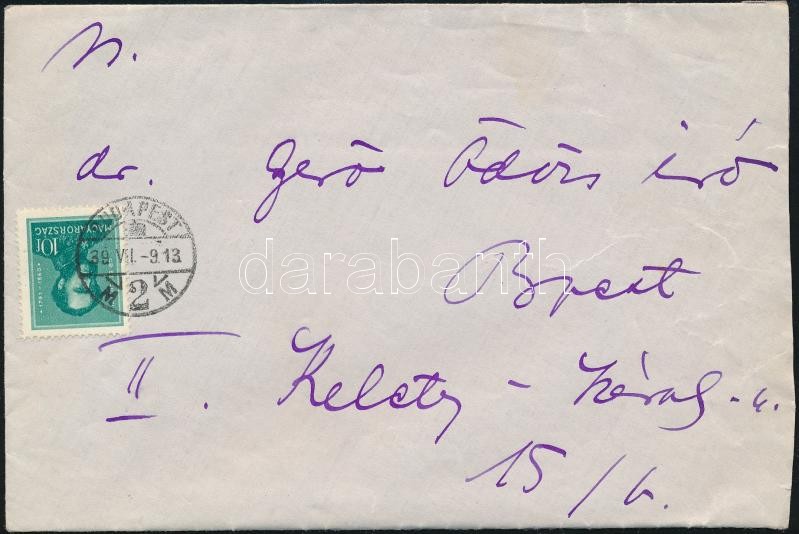 N.
dr. Gerő Ödön író
Bpest
II. Keleti-Károly-u.
15/b.
BUDAPEST
39.VII.-9.13
2
M M
MAGYARORSZÁG
10f
1791-1860
darabanth